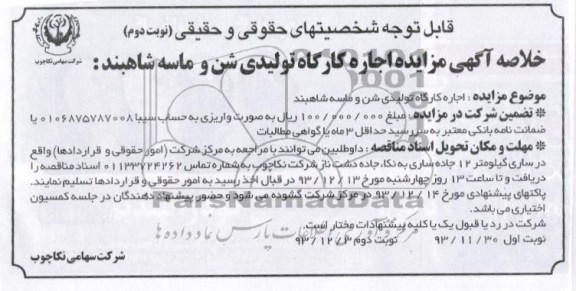 قابل توجه شخصیتهای حقوقی و حقیقی (نوبت دوم)
خلاصه آگهی مزایده اجاره کارگاه تولیدی شن و ماسه شاهبند:
شرکت سهامی نکاچوب
موضوع مزایده : اجاره کارگاه تولیدی شن و ماسه شاهبند
* تضمین شرکت در مزایده: مبلغ ۱۰۰/۰۰۰/۰۰۰ ریال به صورت واریزی به حساب سیبا ۰۱۰۶۸۷۵۷۸۷۰۰۸ یا
ضمانت نامه بانکی معتبر به سررسید حداقل ۳ ماه یا گواهی مطالبات
* مهلت و مکان تحویل اسناد مناقصه : داوطلبین می توانند با مراجعه به مرکز شرکت (امور حقوقی و قراردادها) واقع
در ساری کیلومتر ۱۲ جاده ساری به نکا، جاده دشت ناز شرکت نکاچوب به شماره تماس ۰۱۱۳۳۷۲۴۲۶۲ اسناد مناقصه را
دریافت و تا ساعت ۱۳ روز چهارشنبه مورخ ۹۳/۱۲/۱۳ در قبال اخذ رسید به امور حقوقی و قراردادها تسلیم نمایند.
پاکتهای پیشنهادی مورخ ۹۳/۱۲/۱۴ در مرکز شرکت گشوده می شود و حضور پیشنهاد دهندگان در جلسه کمسیون
اختیاری می باشد.
شرکت در رد یا قبول یک یا کلیه پیشنهادات مختار است.
نوبت اول ۹۳/۱۱/۳۰ نوبت دوم ۹۳/۱۲/۳
شرکت سهامی نکاچوب
ParsNamadData